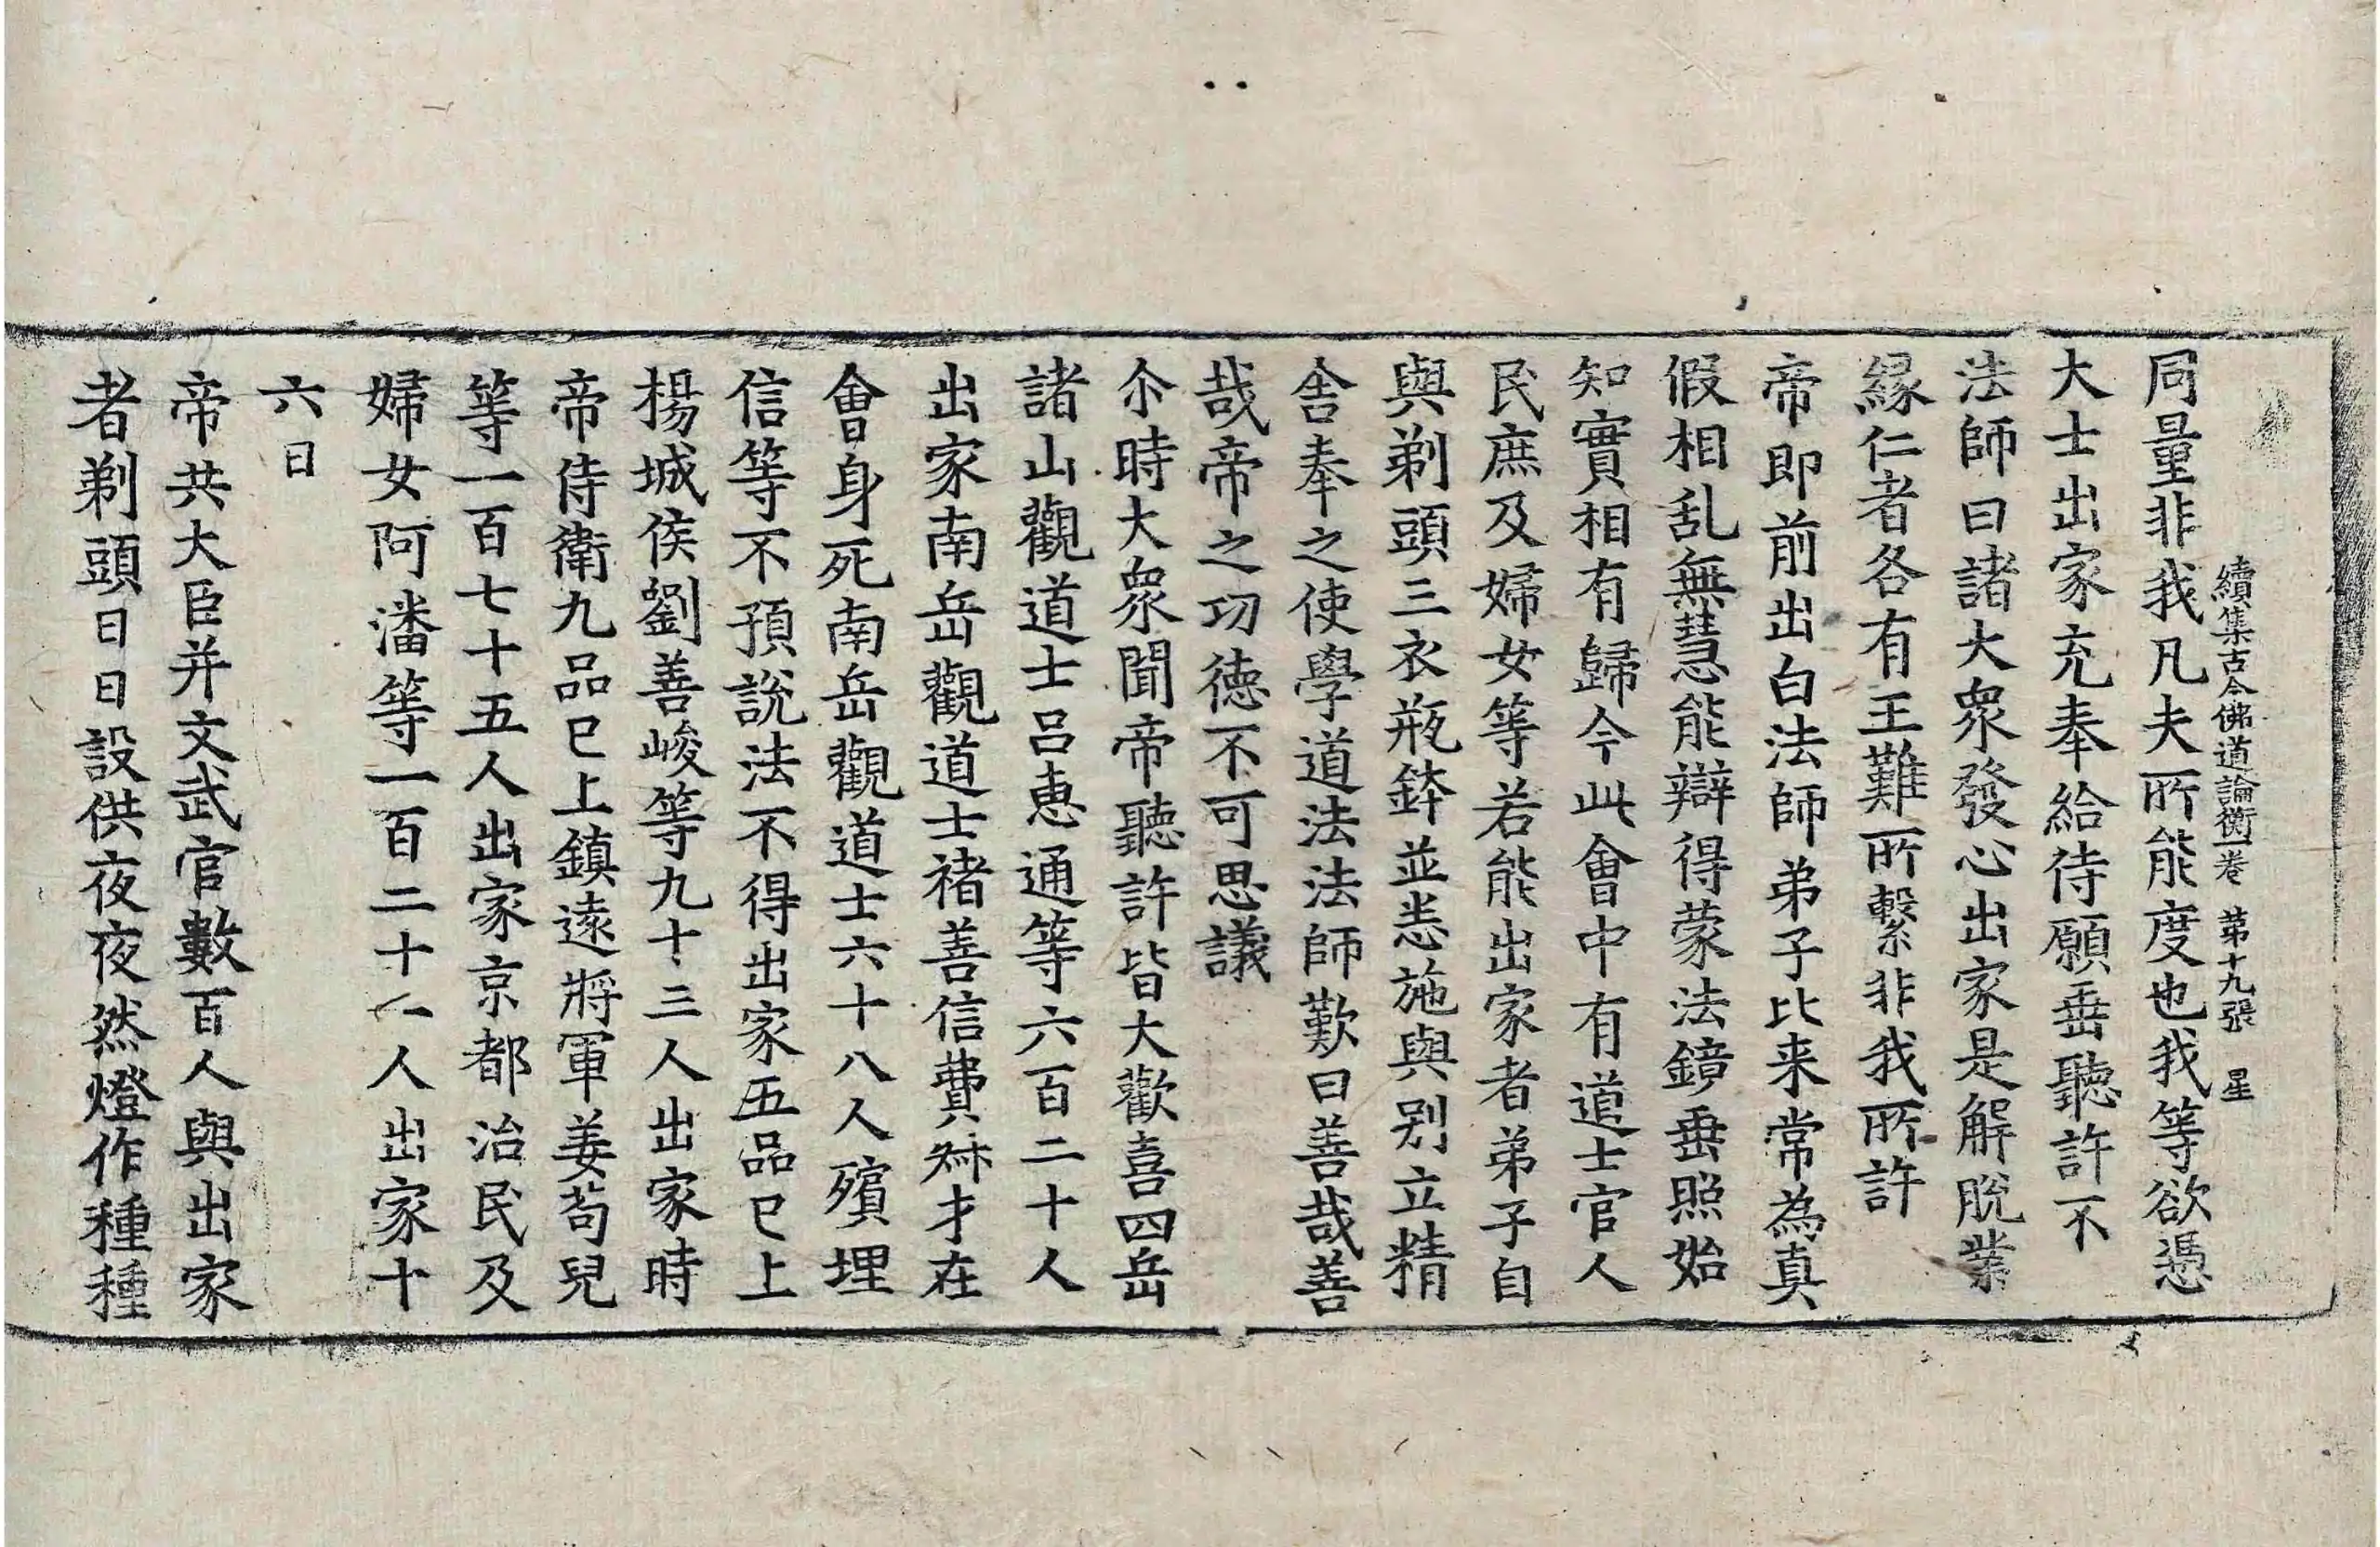 續集古今佛道論衡一卷 第十九張 星
同量非我凡夫所能度也我等欲憑
大士出家充奉給待願垂聽許不
法師曰諸大衆發心出家是解脫業
緣仁者各有王難所繫非我所許
帝即前出白法師弟子比来常為真
假相乱無慧能辯得蒙法鏡垂照始
知實相有歸今此會中有道士官人
民庶及婦女等若能出家者弟子自
與剃頭三衣瓶鉢並悉施與别立精
舍奉之使學道法法師歎曰善哉善
哉帝之功德不可思議
尒時大衆聞帝聽許皆大歡喜四岳
諸山觀道士吕惠通等六百二十人
出家南岳觀道士褚善信費才在
會身死南岳觀道士六十八人殯埋
信等不預說法不得出家五品已上
楊城侯劉善峻等九十三人出家時
帝侍衛九品已上鎮遠將軍姜苟兒
等一百七十五人出家京都治民及
婦女阿潘等一百二十一人出家十
六日
帝共大臣并文武官數百人與出家
者剃頭日日設供夜夜然燈作種種